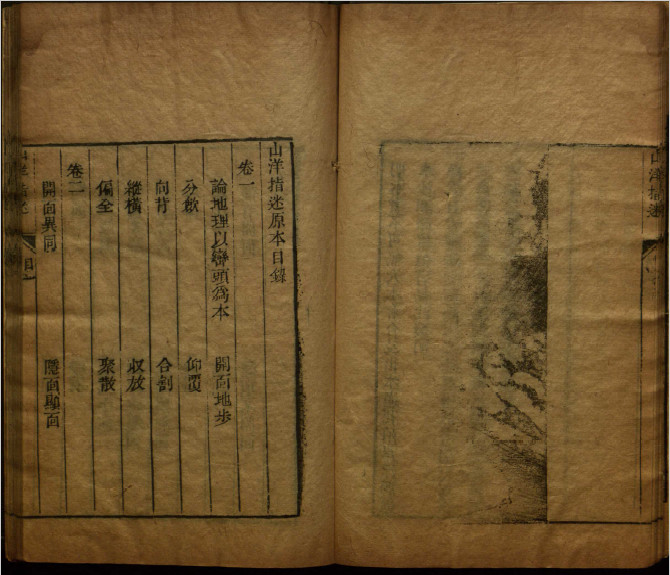 山洋指迷
山洋指迷原本目錄
卷一
論地理以巒頭爲本 開面地步
分歛 仰覆
向背 合割
縱橫 收放
偏全 聚散
卷二
開面異同 隱面顯面